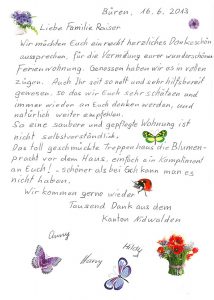 Büren, 16. 6. 2013
Liebe Familie Rauser
Wir möchten Euch ein recht herzliches Dankeschön
aussprechen, für die Vermietung eurer wunderschönen
Ferienwohnung. Genossen haben wir es in vollen
zügen. Auch Ihr seit so nett und sehr hilfsbereit
gewesen, so das wir Euch sehr schätzen und
immer wieder an Euch denken werden, und
natürlich weiter empfehlen.
So eine saubere und gepflegte Wohnung ist
nicht selbstverständlich.
Das toll geschmückte Treppenhaus die Blumen-
pracht vor dem Haus, einfach ein Kompliment
an Euch! - schöner als bei Euch kann man es
nicht haben.
Wir kommen gerne wieder
Tausend Dank aus dem
Kanton Nidwalden
Hildy
Harry